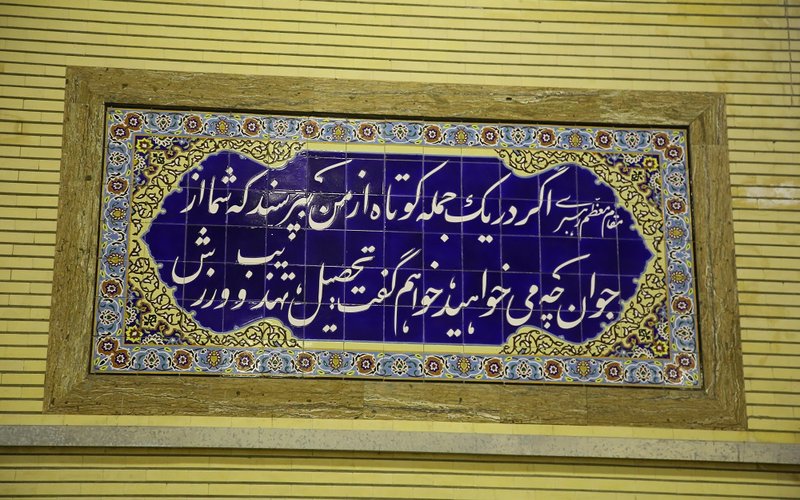 مقام معظم رهبری اگر در یک جمله کوتاه از من بپرسند که شما از
جوان چه می خواهید، خواهم گفت تحصیل، تهذیب و ورزش